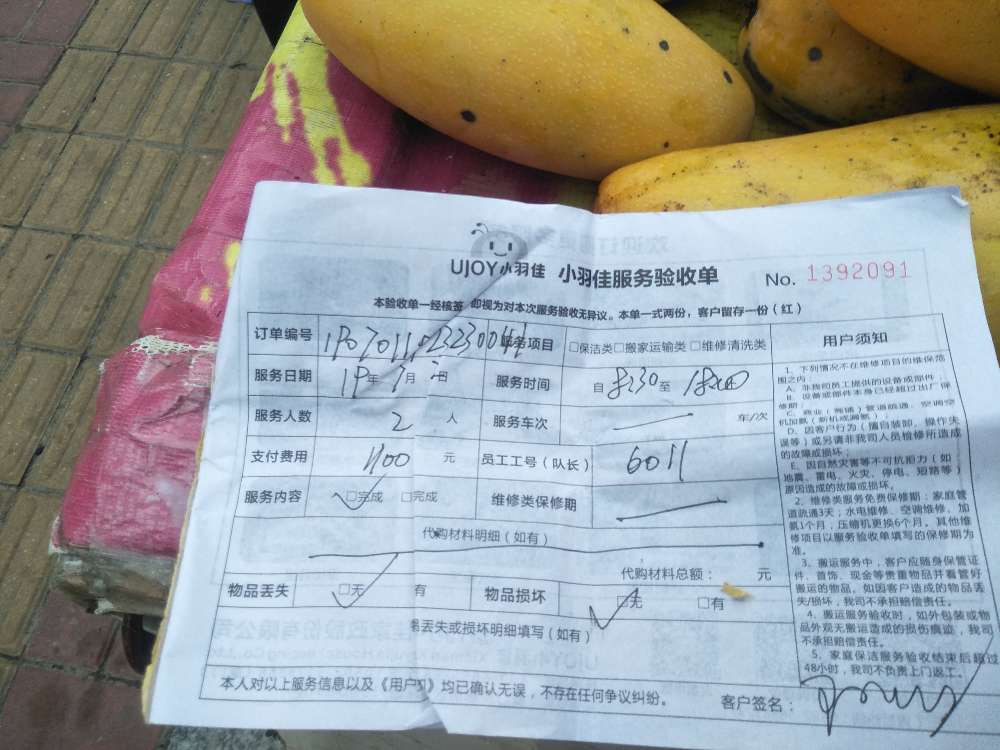 UJOY小羽佳 小羽佳服务验收单 No. 1392091
本验收单一经核签 即视为对本次服务验收无异议。本单一式两份，客户留存一份（红）
订单编号 务项目 □保洁类□搬家运输类□维修清洗类
服务日期 19年 7月 服务时间 自 8:30 至
服务人数 2 人 服务车次 车/次
支付费用 1100 元 员工工号（队长） 6011
服务内容 □完成 □完成 维修类保修期
代购材料明细（如有）
代购材料总额： 元
物品丢失 □无 有 物品损坏 □无 □有
丢失或损坏明细填写（如有）
本人对以上服务信息以及《用户 》均已确认无误，不存在任何争议纠纷。
客户签名：
用户须知
1、下列情况不在维修项目的维保范
围之内：
A、非我司员工提供的设备或部件；
B、设备或部件本身已经超过出厂保
修期；
C、商业（商铺）管道疏通、空调空
机加氨（新机或漏氨）；
D、因客户行为（擅自装卸、操作失
误等）或另请非我司人员检修所造成
的故障或损坏；
E、因自然灾害等不可抗拒力（如
地震、雷电、火灾、停电、短路等）
原因造成的故障或损坏。
2、维修类服务免费保修期：家庭管
道疏通3天；水电维修、空调维修、加
氨1个月；压缩机更换6个月。其他维
修项目以服务验收单填写的保修期为
准。
3、搬运服务中，客户应随身保管证
件、首饰、现金等贵重物品并看管好
搬运的物品。如因客户造成的物品丢
失/损坏，我司不承担赔偿责任。
4、搬运服务验收时，如外包装或物
品外观无搬运造成的损伤痕迹，我司
不承担赔偿责任。
5、家庭保洁服务验收结束后超过
48小时，我司不负责上门返工。